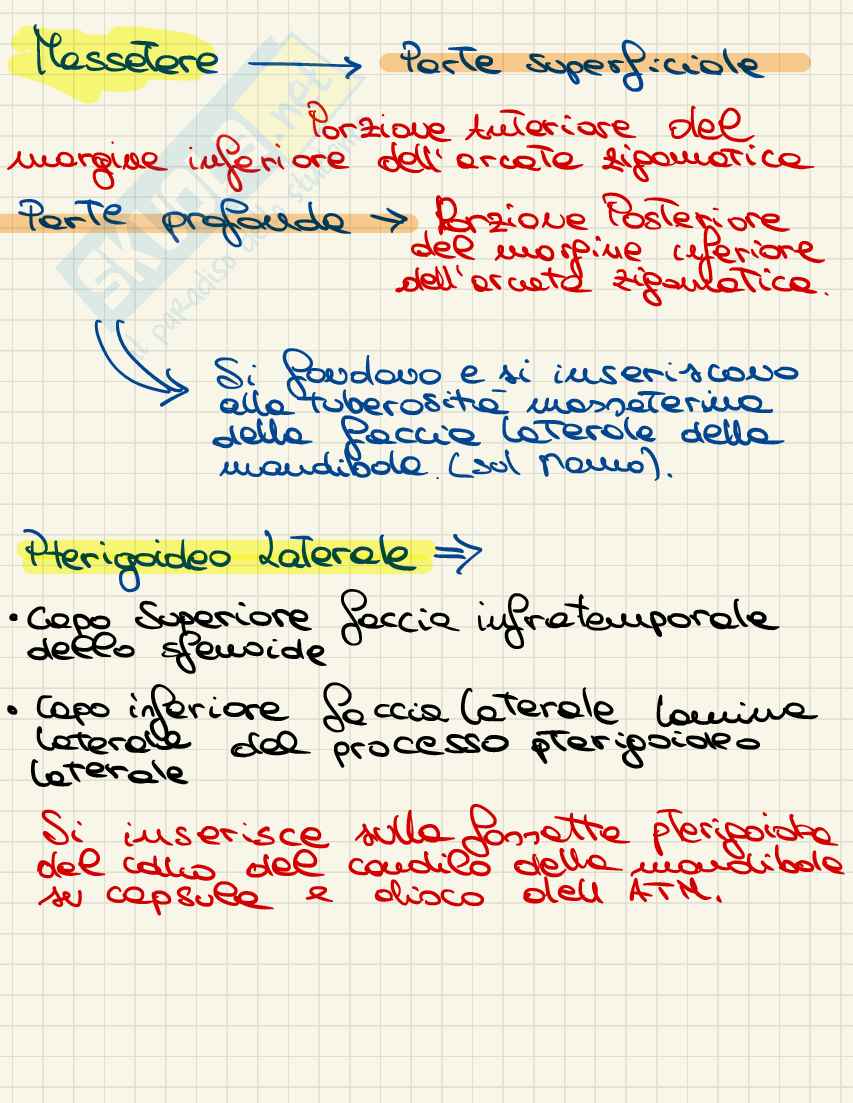 Massetere → Parte superficiale
Porzione Anteriore del
margine inferiore dell'arcata zigomatica
Parte profonda → Porzione Posteriore
del margine inferiore
dell'arcata zigomatica.
Si fondono e si inseriscono
alla tuberosità masseterina
della faccia laterale della
mandibola (sul ramo).
Pterigoideo Laterale ⇒
• Capo Superiore faccia infratemporale
dello sfenoide
• Capo inferiore faccia laterale lamina
laterale del processo pterigoideo
laterale
Si inserisce sulla fossetta pterigoidea
del collo del condilo della mandibola
su capsula e disco dell ATM.
SKUOLA.net
il paradiso dello studente